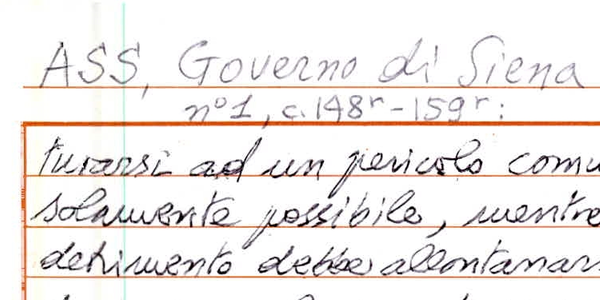 ASS, Governo di Siena
n° 1, c. 148r - 159r:
turarsi ad un pericolo comu
solamente possibile, mentre
detrimento debbe allontanars